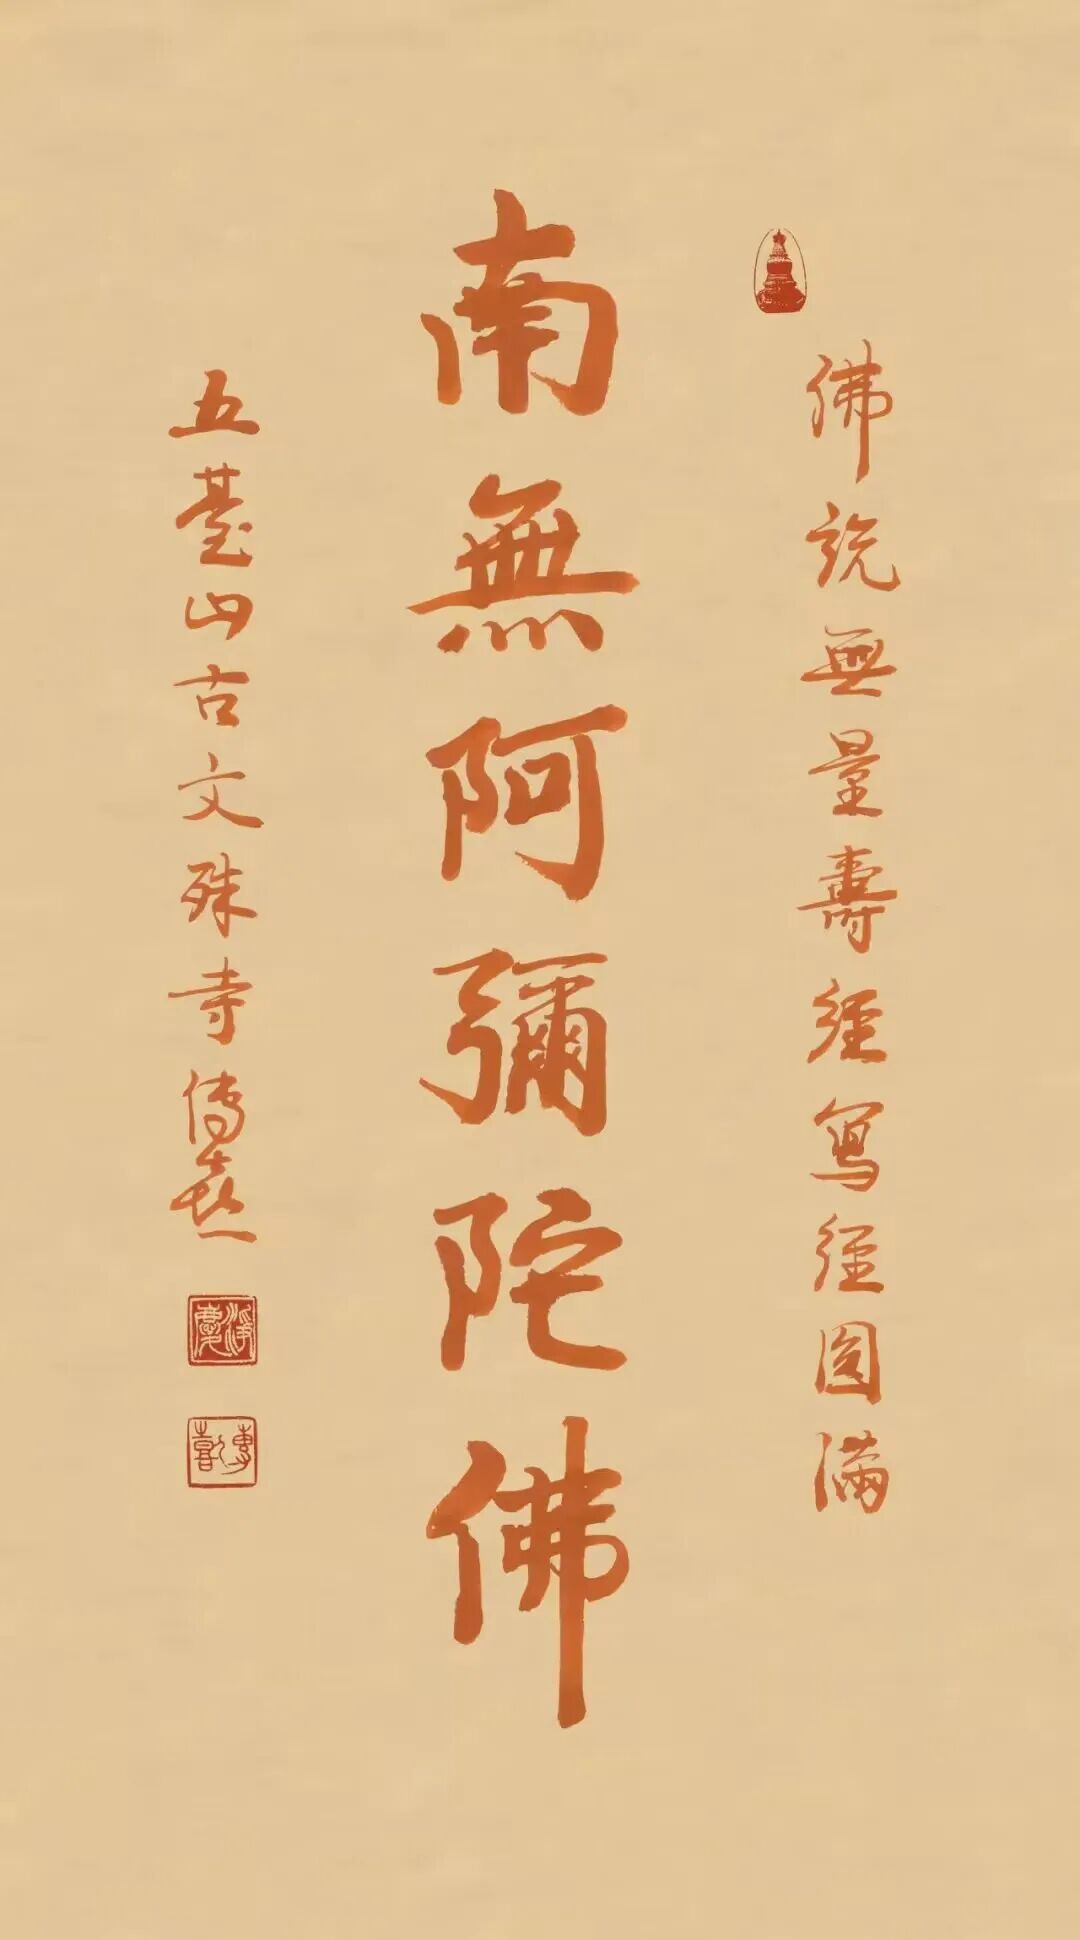 佛説無量壽經寫經圓滿
南無阿彌陀佛
五臺山古文殊寺傳喜
淨慶
傳喜